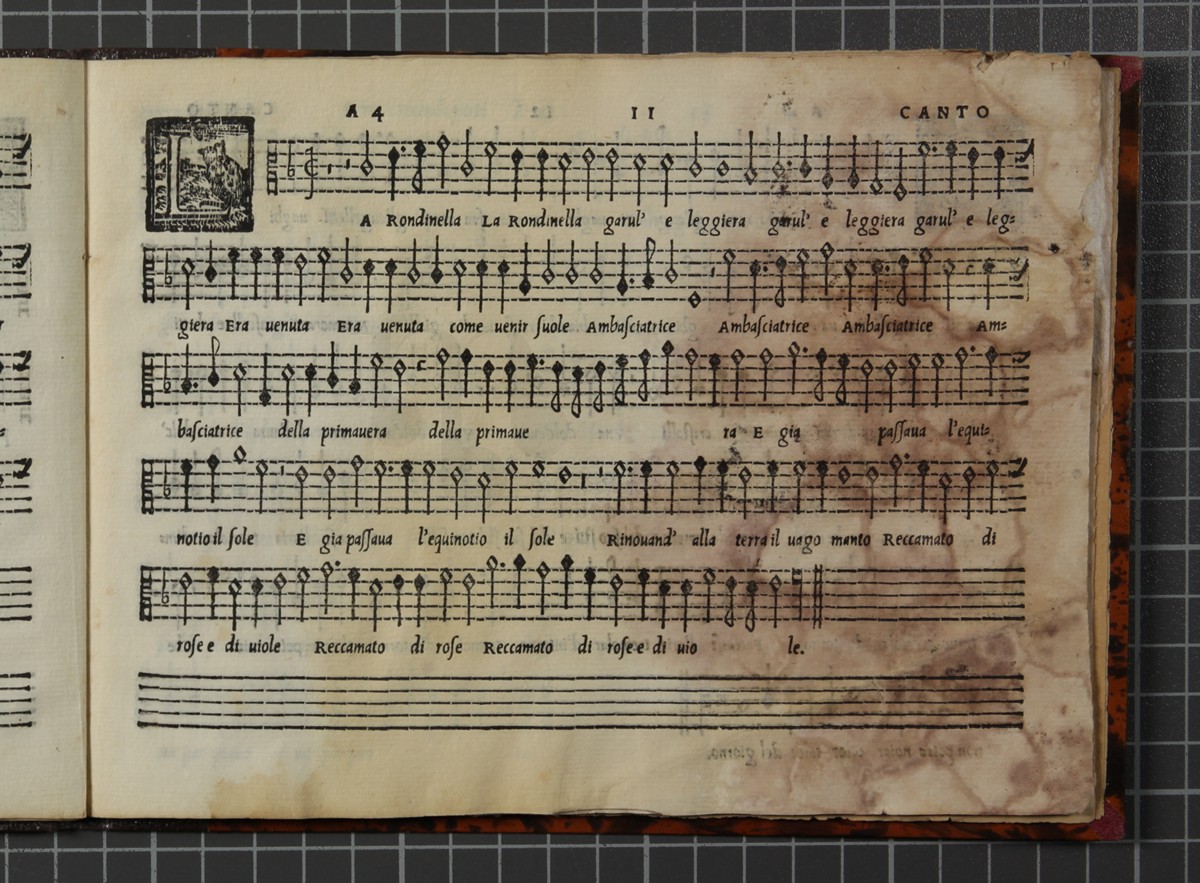 A 4 II CANTO
LA Rondinella La Rondinella garul' e leggiera garul' e leggiera garul' e leg=
giera Era uenuta Era uenuta come uenir ſuole Ambaſciatrice Ambaſciatrice Ambaſciatrice Am=
baſciatrice della primauera della primaue ra E gia paſſaua l'equi=
notio il ſole E gia paſſaua l'equinotio il ſole Rinouand' alla terra il uago manto Reccamato di
roſe e di uiole Reccamato di roſe Reccamato di roſe e di uio le.